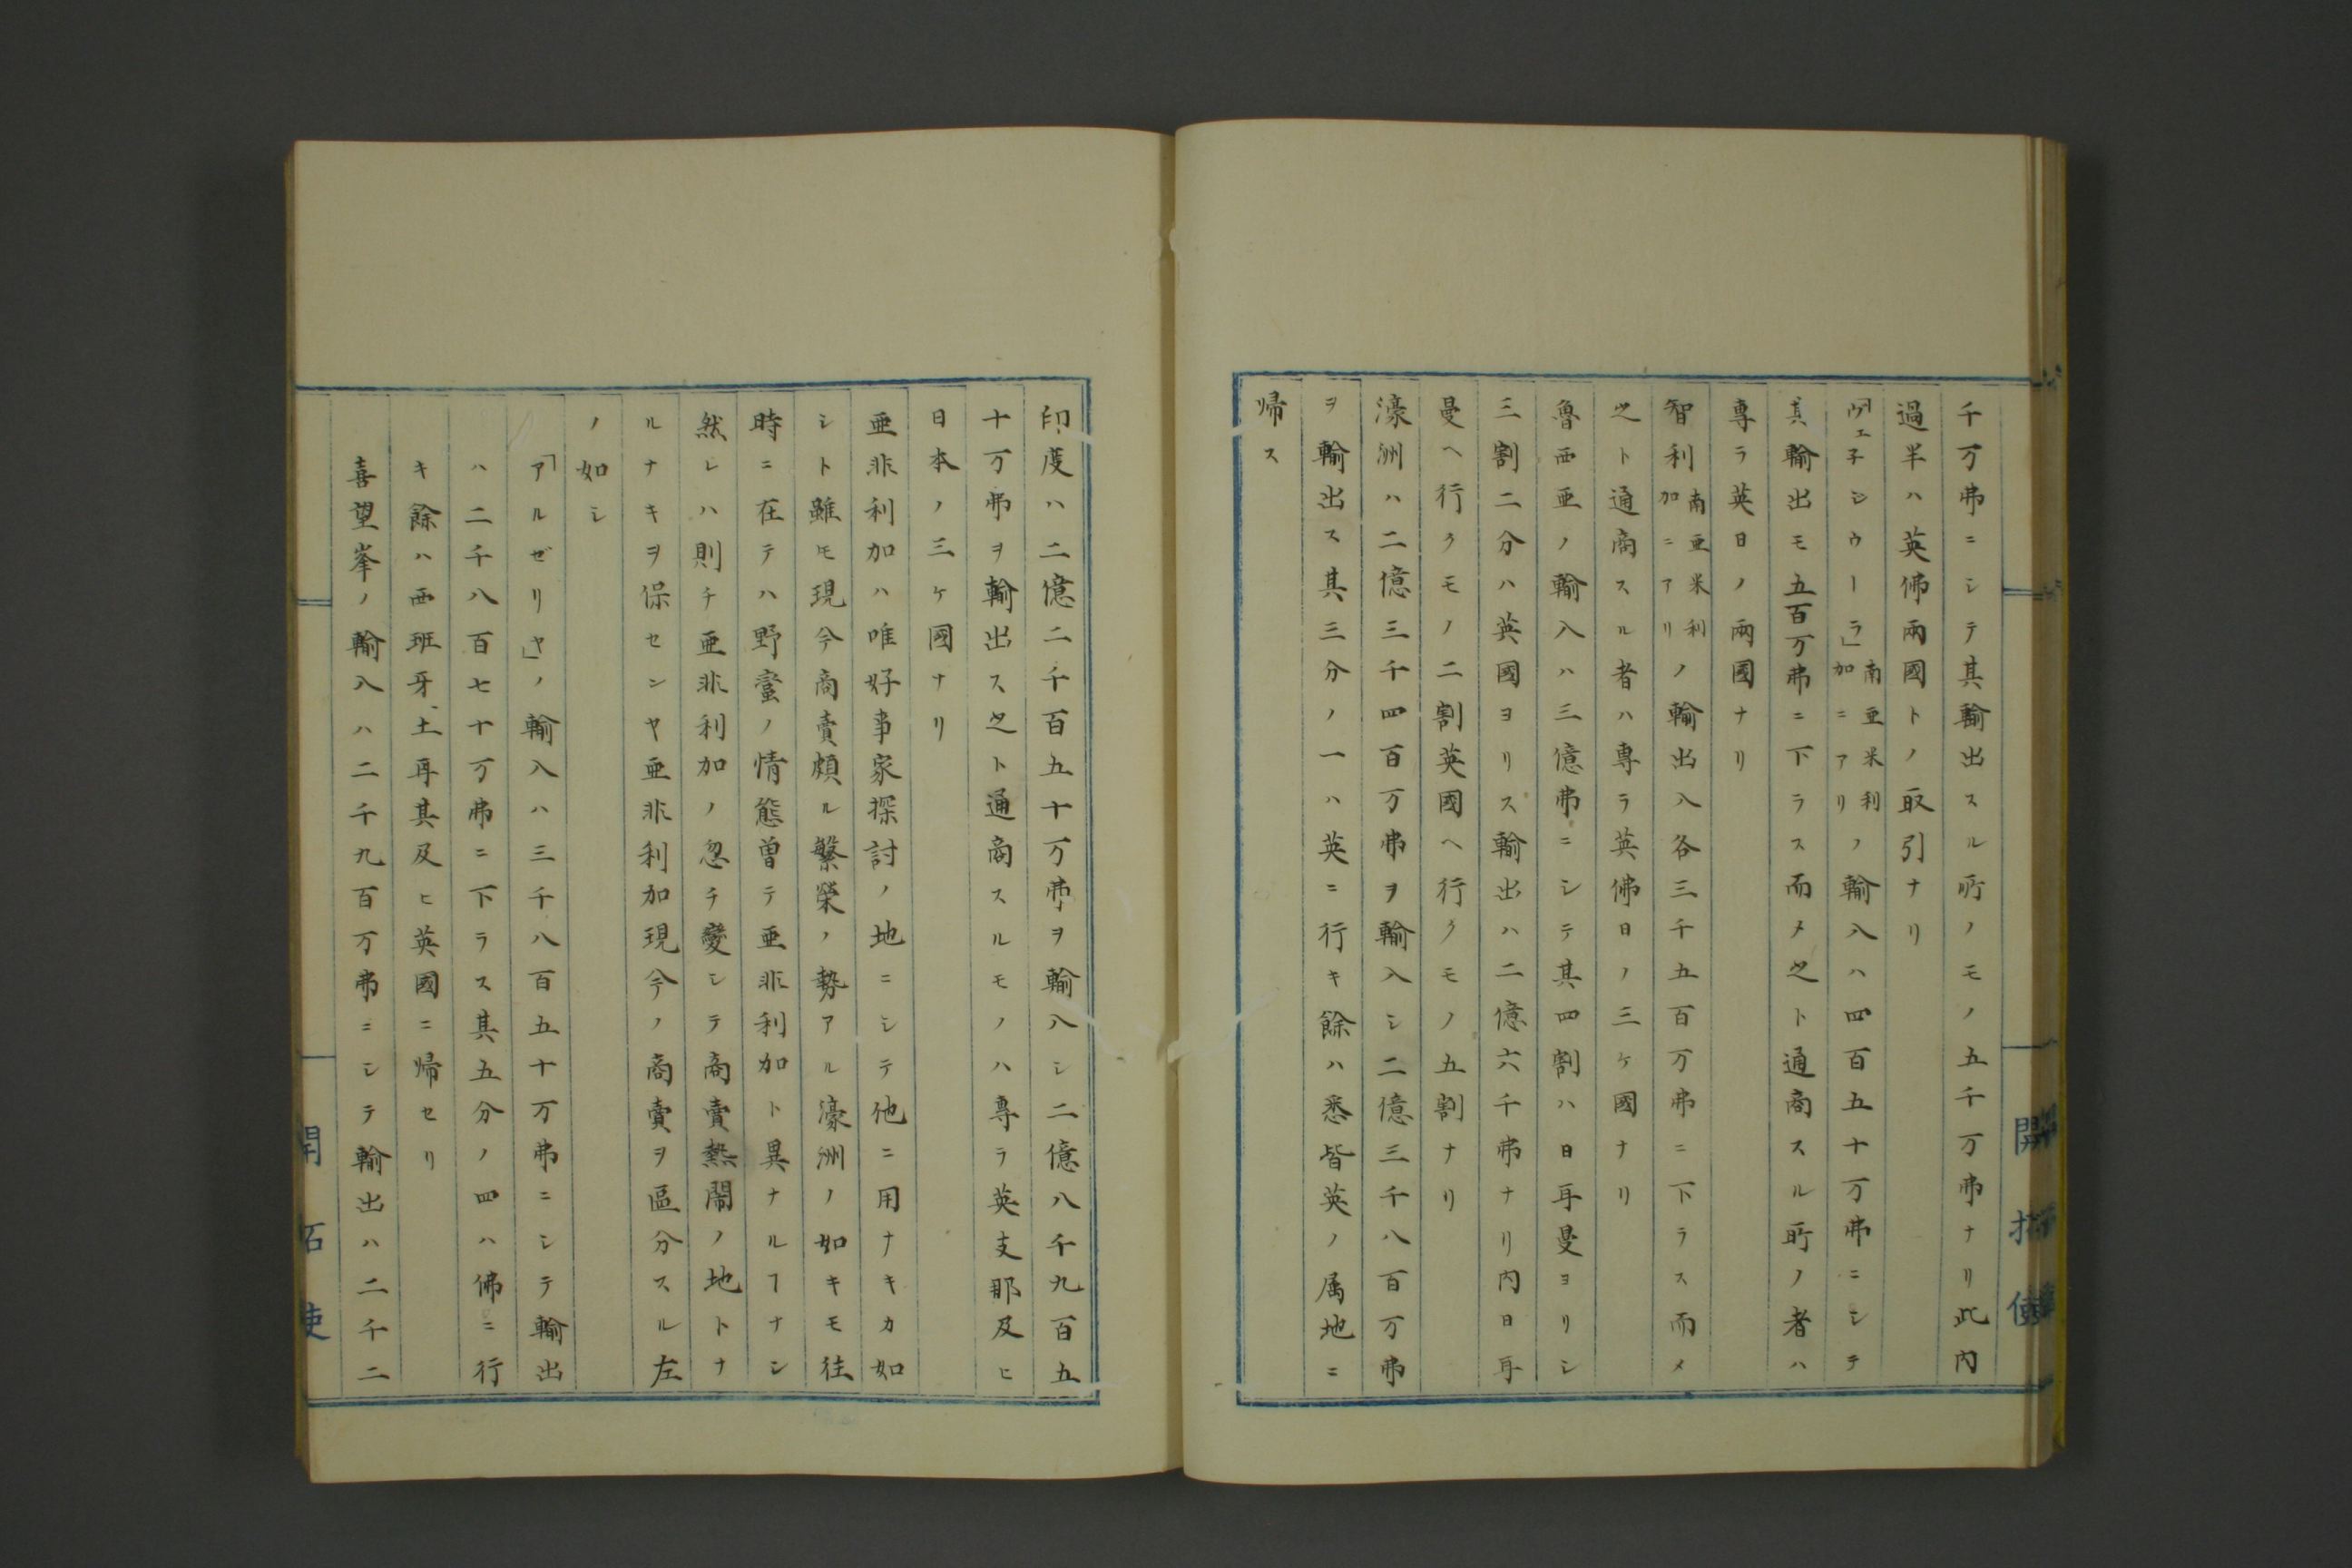 千万弗ニシテ其輸出スル所ノモノ五千万弗ナリ此内
過半ハ英佛兩國トノ取引ナリ
「ヴェ子シウーラ」南亜米利加ニアリノ輸入ハ四百五十万弗ニシテ
其輸出モ五百万弗ニ下ラス而メ之ト通商スル所ノ者ハ
専ラ英日ノ兩國ナリ
智利南亜米利加ニアリノ輸出入各三千五百万弗ニ下ラス而メ
之ト通商スル者ハ専ラ英佛日ノ三ケ國ナリ
魯西亜ノ輸入ハ三億弗ニシテ其四割ハ日耳曼ヨリシ
三割二分ハ英國ヨリス輸出ハ二億六千弗ナリ内日耳
曼ヘ行クモノ二割英國ヘ行クモノ五割ナリ
濠洲ハ二億三千四百万弗ヲ輸入シ二億三千八百万弗
ヲ輸出ス其三分ノ一ハ英ニ行キ餘ハ悉皆英ノ属地ニ
帰ス
開拓使
印度ハ二億二千百五十万弗ヲ輸入シ二億八千九百五
十万弗ヲ輸出ス之ト通商スルモノハ専ラ英支那及ヒ
日本ノ三ケ國ナリ
亜非利加ハ唯好事家探討ノ地ニシテ他ニ用ナキカ如
シト雖モ現今商賣頗ル繁榮ノ勢アル濠洲ノ如キモ往
時ニ在テハ野蠻ノ情態曽テ亜非利加ト異ナルヿナシ
然レハ則チ亜非利加ノ忽チ變シテ商賣熱鬧ノ地トナ
ルナキヲ保センヤ亜非利加現今ノ商賣ヲ區分スル左
ノ如シ
「アルゼリヤ」ノ輸入ハ三千八百五十万弗ニシテ輸出
ハ二千八百七十万弗ニ下ラス其五分ノ四ハ佛ニ行
キ餘ハ西班牙、土耳其及ヒ英國ニ帰セリ
喜望峯ノ輸入ハ二千九百万弗ニシテ輸出ハ二千二
開拓使